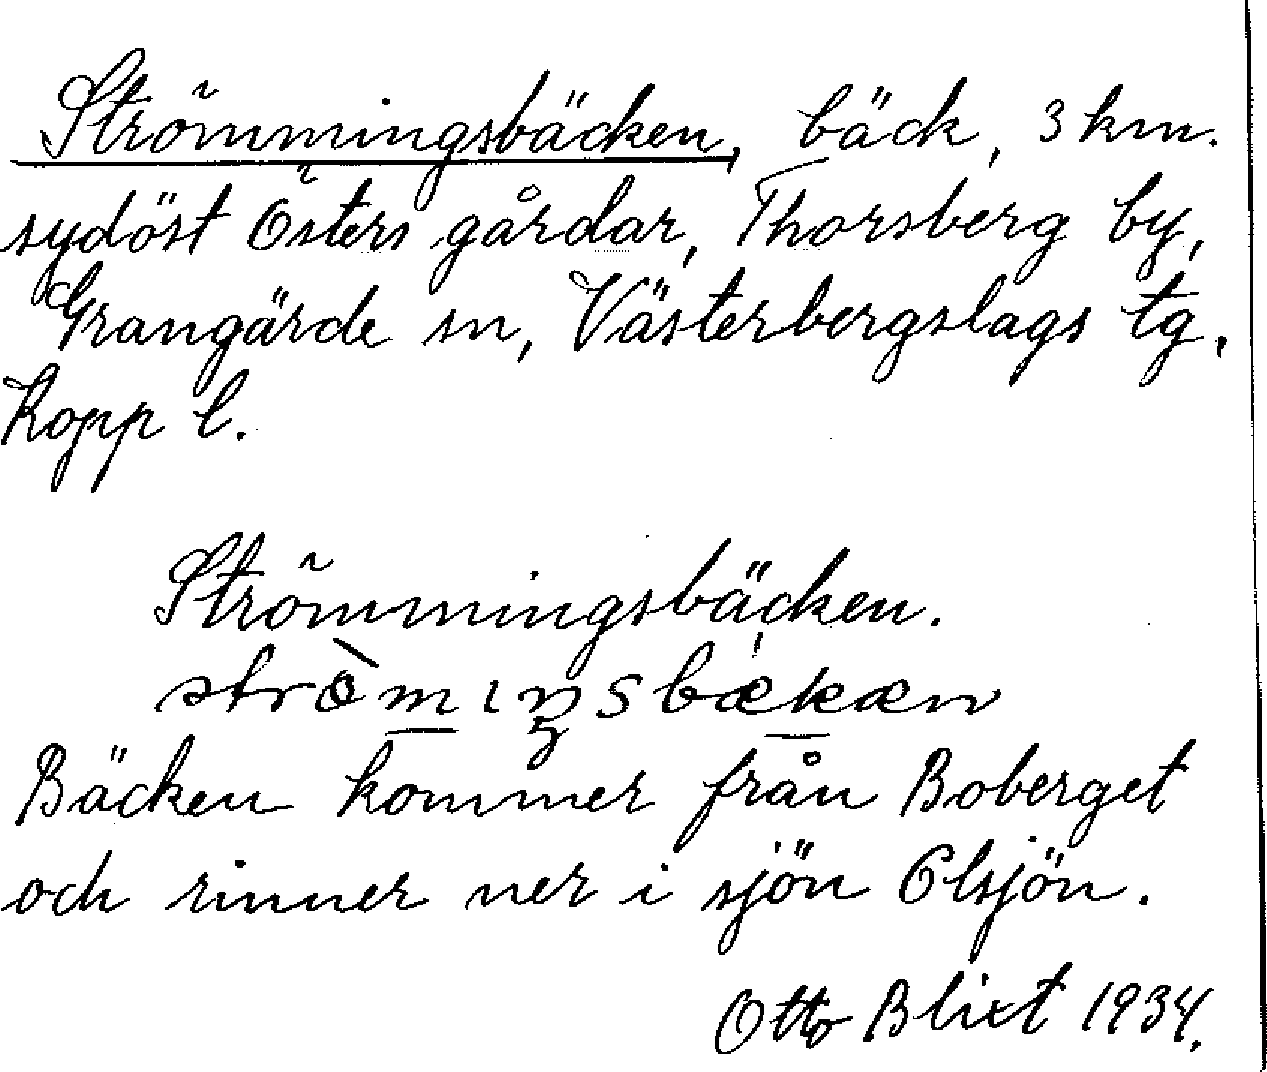 Strömmingsbäcken, bäck, 3 km.
sydöst Östers gårdar, Thorsberg by,
Grangärde sn, Västerbergslags tg,
Kopp l.
Strömmingsbäcken.
Bäcken kommer från Boberget
och rinner ner i sjön Olsjön.
Otto Blixt 1934.